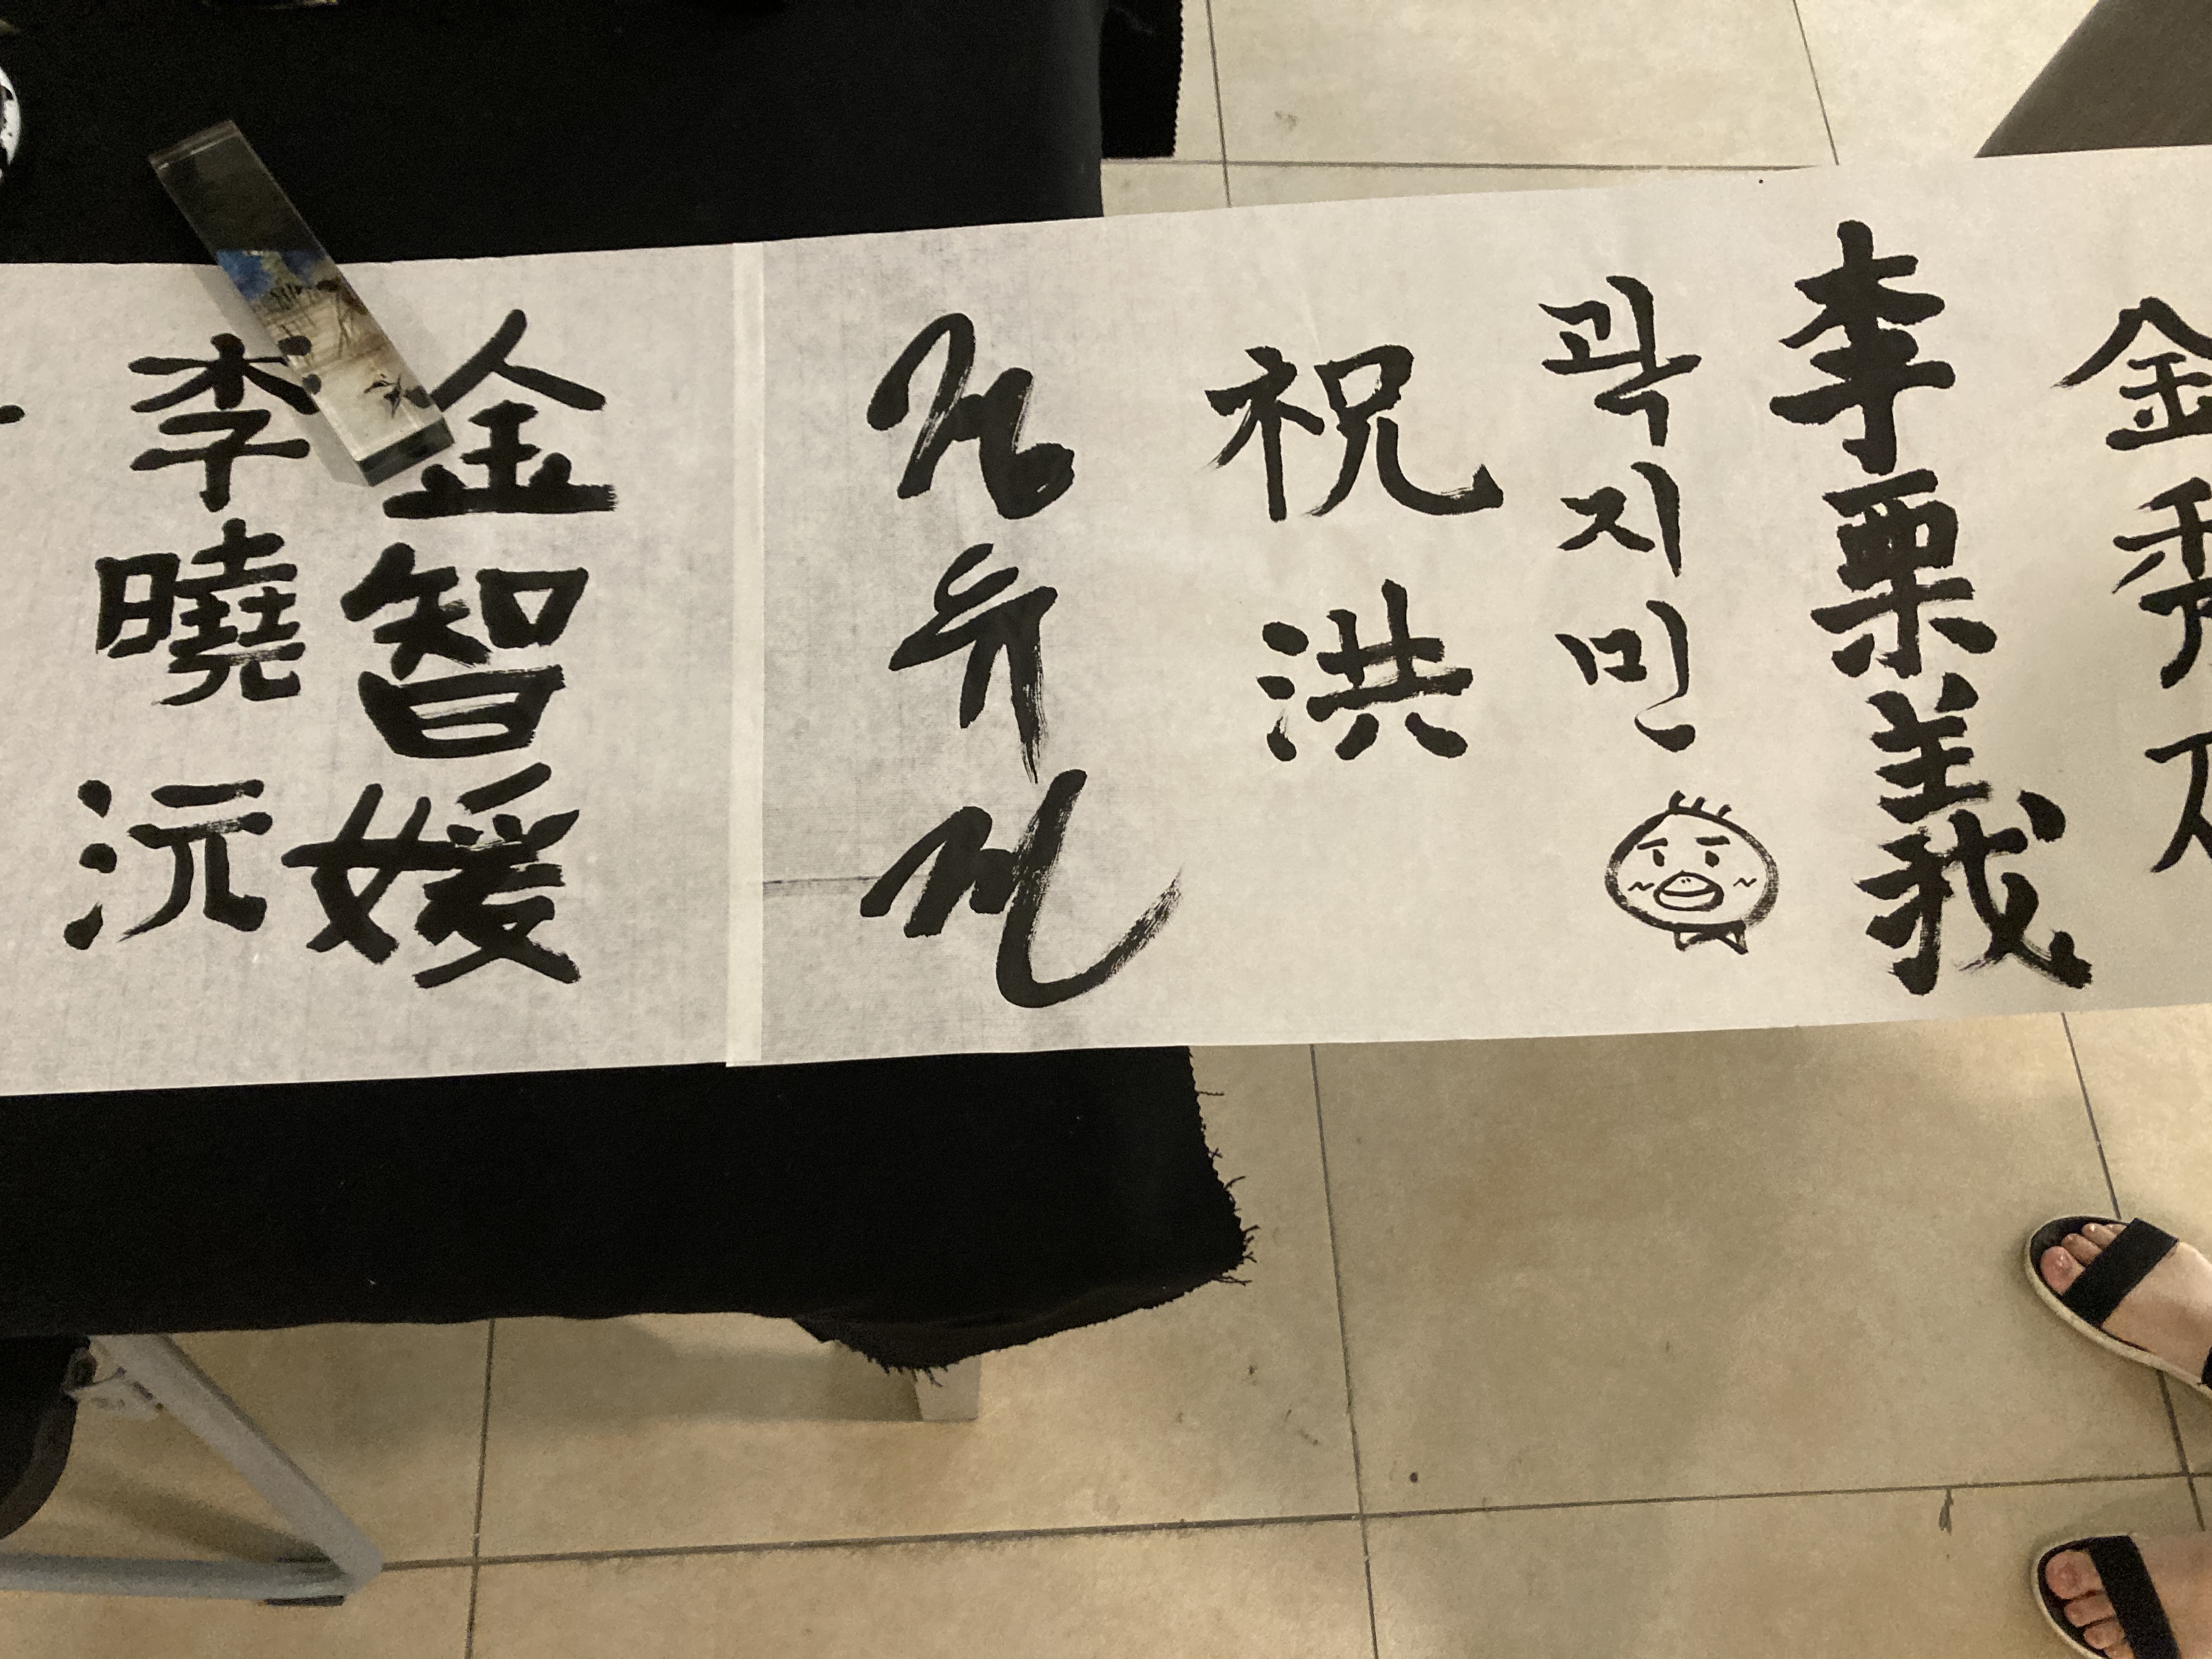 金秀
李栗義
곽지민
祝洪
김유진
金智媛
李曉沅